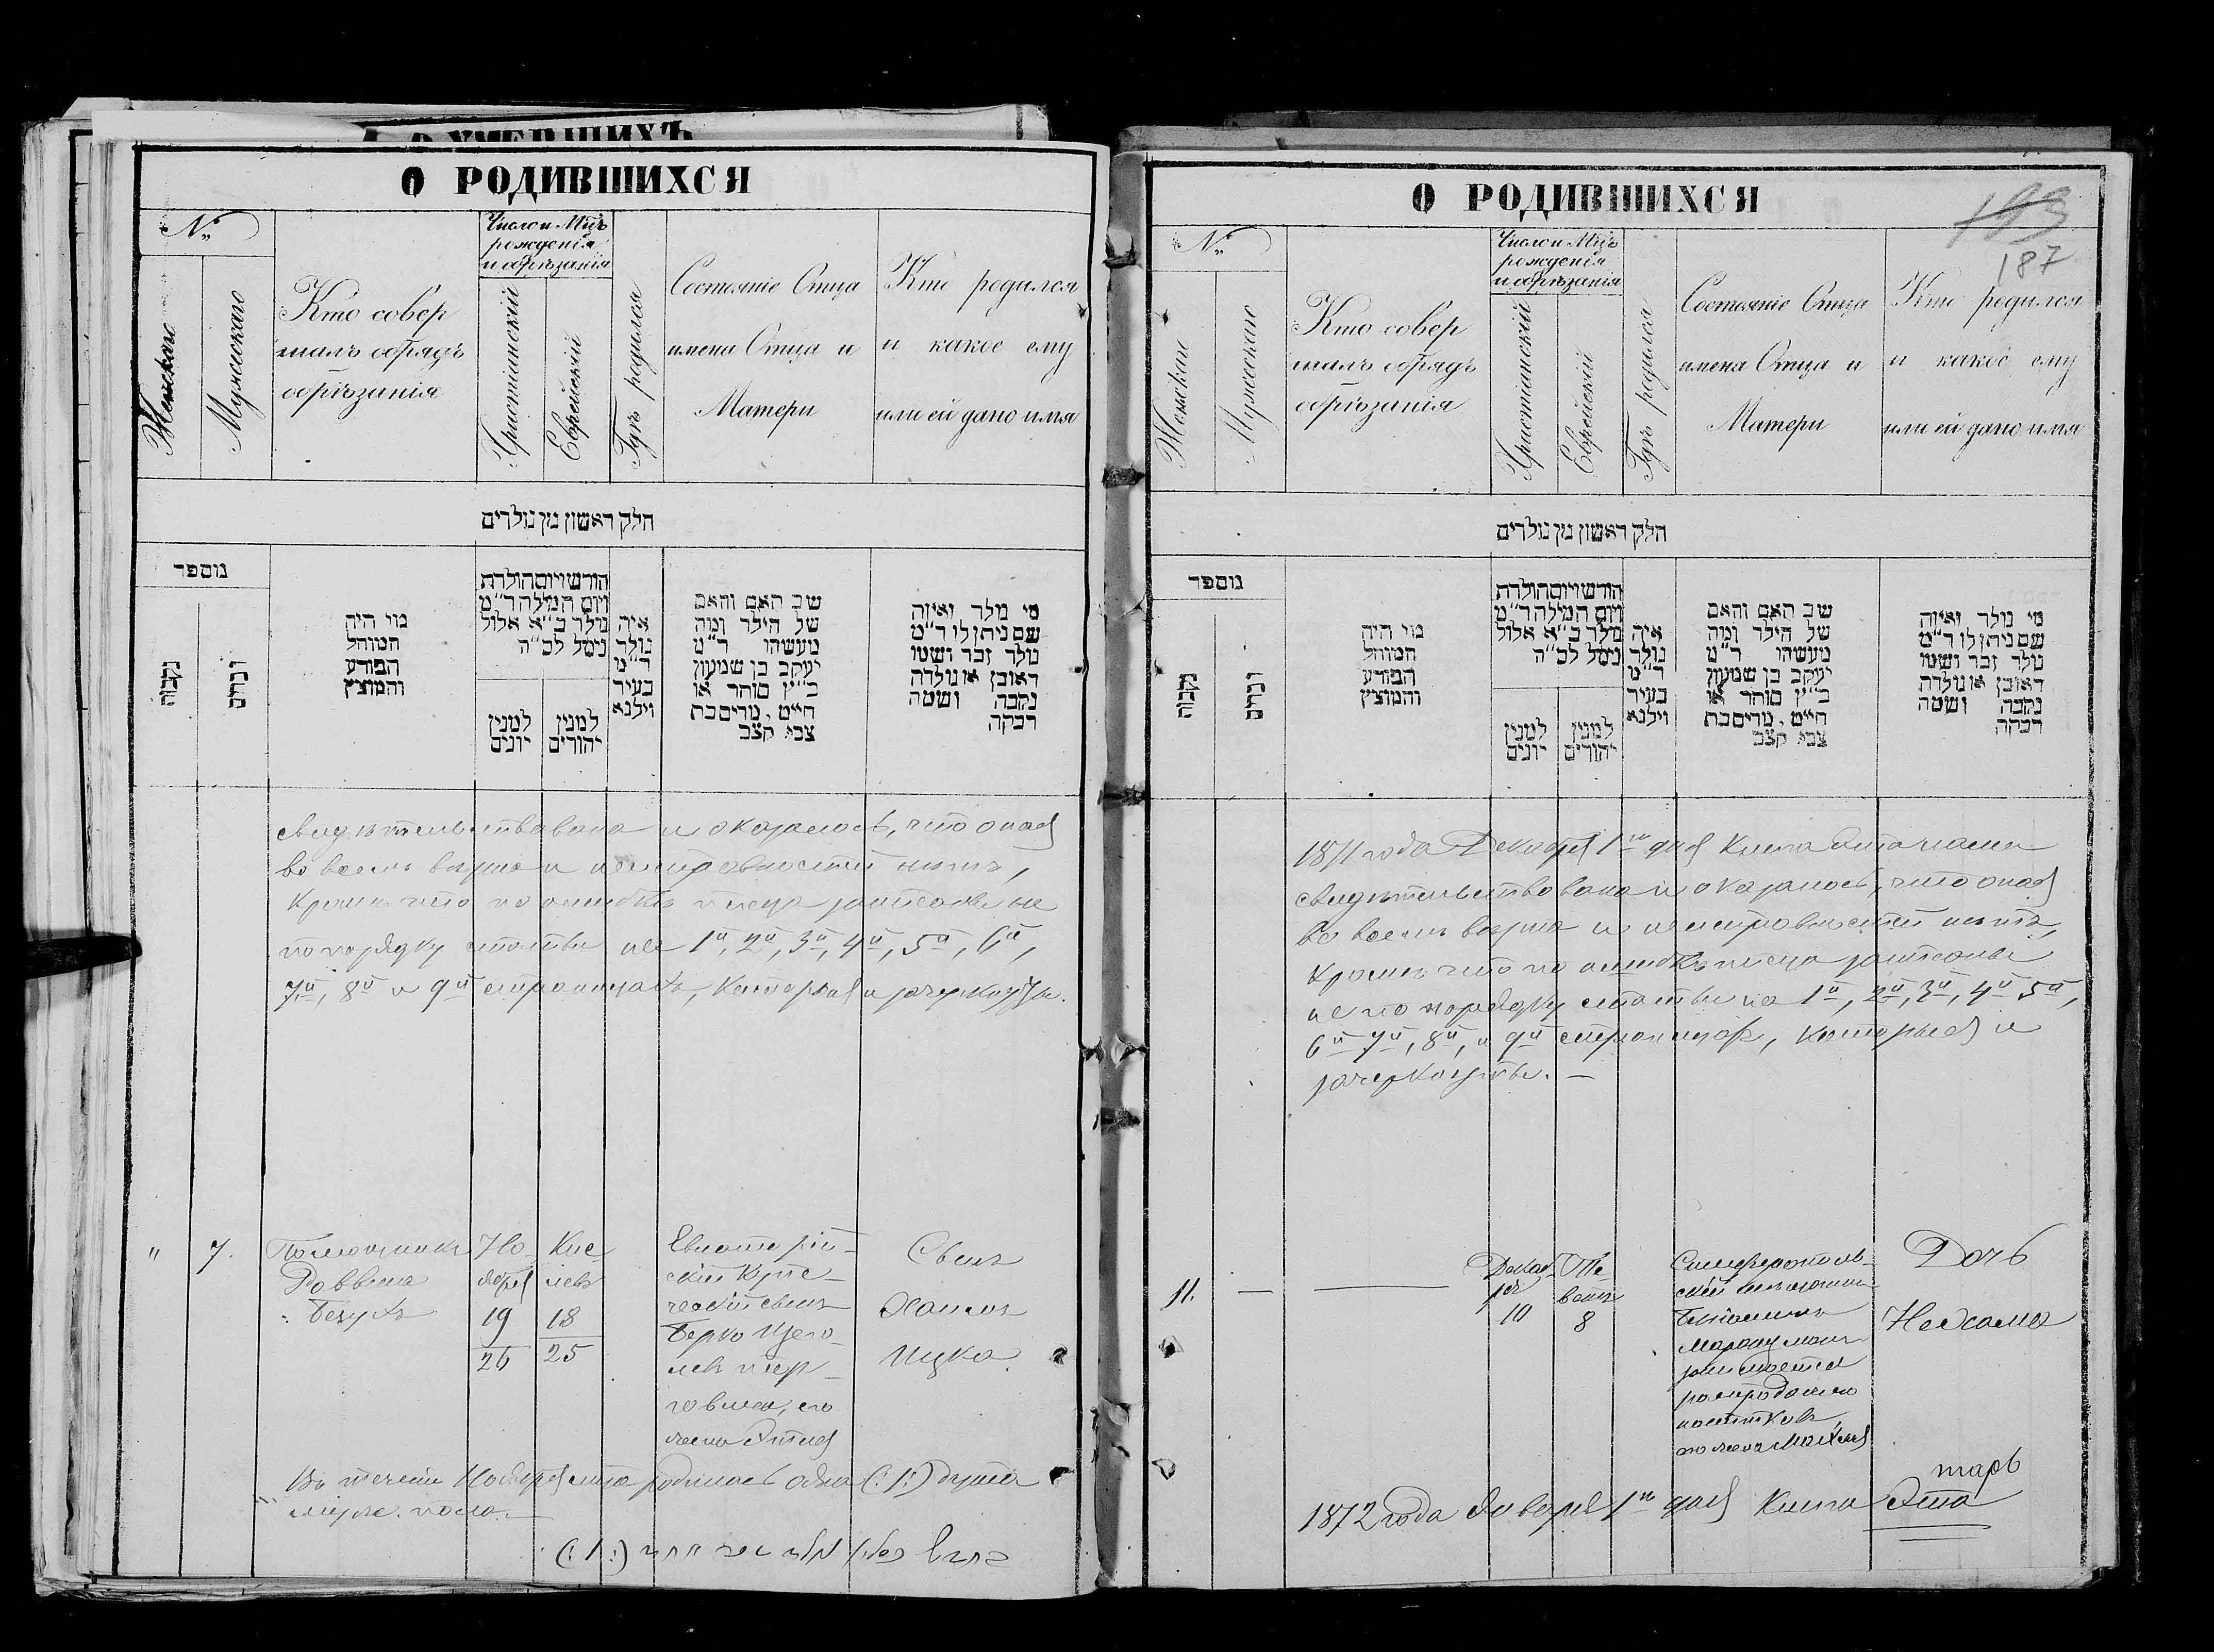 О РОДИВШИХСЯ
№
Женскаго
Мужескаго
Кто совер
шалъ обрядъ
обрѣзанія
Число и Мцъ
рожденія
и обрѣзанія
Христіанскій
Еврейскій
Гдѣ родился
Состояніе Отца
имена Отца и
Матери
Кто родился
и какое ему
или ей дано имя
חלק ראשון מן נולדים
מספר
נקבות
זכרים
מי היה
המוהל
הפורע
והמוצץ
חודש ויום הולדת
ויום המילה ר"מ
נולד ב"א אלול
נימל לס"ה
למנין
יונים
למנין
יהודים
איה
נולד
ר"מ
בעיר
ווילנא
שב האם והאם
של הילד ומה
מעשהו ר"מ
יעקב בן שמעון
כ"ץ סוחר או
חייט, מרים בת
צבי קצב
מי נולד ואיזה
שם ניתן לו ר"מ
נולד זכר ושמו
ראובן או נולדה
נקבה ושמה
רבקה
свидѣтельствована и оказалось, что оная
во всемъ вѣрна и неисправностей нѣтъ,
кромѣ что по ошибкѣ писца записаны не
по порядку статьи на 1й, 2й, 3й, 4й, 5й, 6й,
7й, 8й и 9й страницахъ, которыя и зачеркнуты.
" 7.
Помощникъ
Раввина
Но
ября
19
26
Кис
левъ
18
25
Евпаторій-
скій купе-
ческій сынъ
Берко Щего-
левъ
говлею, его
жена
Сынъ
Хаимъ
Ицко
Въ теченіи Ноября м-ца родилось одна (:1:) душа
мужс. пола.
О РОДИВШИХСЯ
193
187
№
Женскаго
Мужескаго
Кто совер
шалъ обрядъ
обрѣзанія
Число и Мцъ
рожденія
и обрѣзанія
Христіанскій
Еврейскій
Гдѣ родился
Состояніе Отца
имена Отца и
Матери
Кто родился
и какое ему
или ей дано имя
חלק ראשון מן נולדים
מספר
נקבות
זכרים
מי היה
המוהל
הפורע
והמוצץ
חודש ויום הולדת
ויום המילה ר"מ
נולד ב"א אלול
נימל לס"ה
למנין
יונים
למנין
יהודים
איה
נולד
ר"מ
בעיר
ווילנא
שב האם והאם
של הילד ומה
מעשהו ר"מ
יעקב בן שמעון
כ"ץ סוחר או
חייט, מרים בת
צבי קצב
מי נולד ואיזה
שם ניתן לו ר"מ
נולד זכר ושמו
ראובן או נולדה
נקבה ושמה
רבקה
1871 года Декабря 1го дня Книга эта нами
свидѣтельствована и оказалось, что оная
во всемъ вѣрна и неисправностей нѣтъ,
кромѣ что по ошибкѣ писца записаны
не по порядку статьи на 1й, 2й, 3й, 4й 5й,
6й 7й, 8й, и 9й страницах, которыя и
зачеркнуты. —
11. —
Декаб
ря
10
Те
ветъ
8
Симферополь-
скій мѣщанинъ
занимается
его жена
Дочь
Нехама
тарь
1872 года Января 1го дня Книга эта